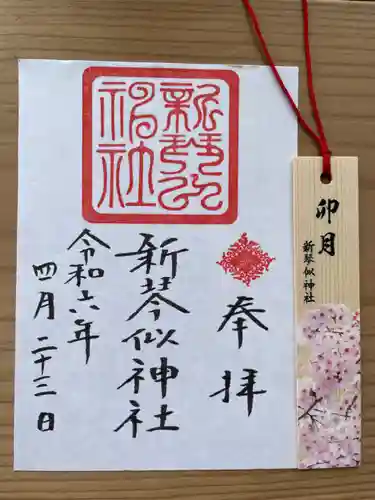 奉拝
新琴似神社
令和六年
四月二十三日
新琴似
神社
卯月
新琴似神社